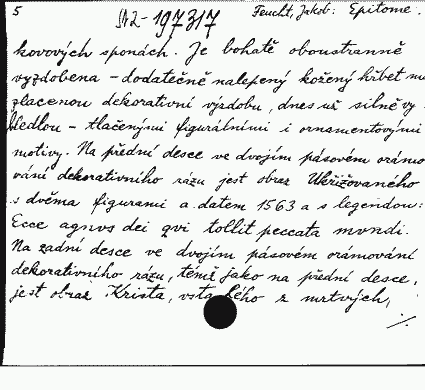 5
Sk2-197317 Feucht, Jakob: Epitome.
kovových sponách. Je bohatě oboustranně
vyzdobena - dodatečně nalepený kožený hřbet má
zlacenou dekorativní výzdobu, dnes už silně vy-
bledlou - tlačenými figurálními i ornamentovými
motivy. Na přední desce ve dvojím pásovém orámo-
vání dekorativního rázu jest obraz Ukřižovaného
s dvěma figurami a datem 1563 a s legendou:
Ecce agnvs dei qvi tollit peccata mvndi.
Na zadní desce ve dvojím pásovém orámování
dekorativního rázu, témž jako na přední desce,
jest obraz Krista, vstalého z mrtvých,
./.